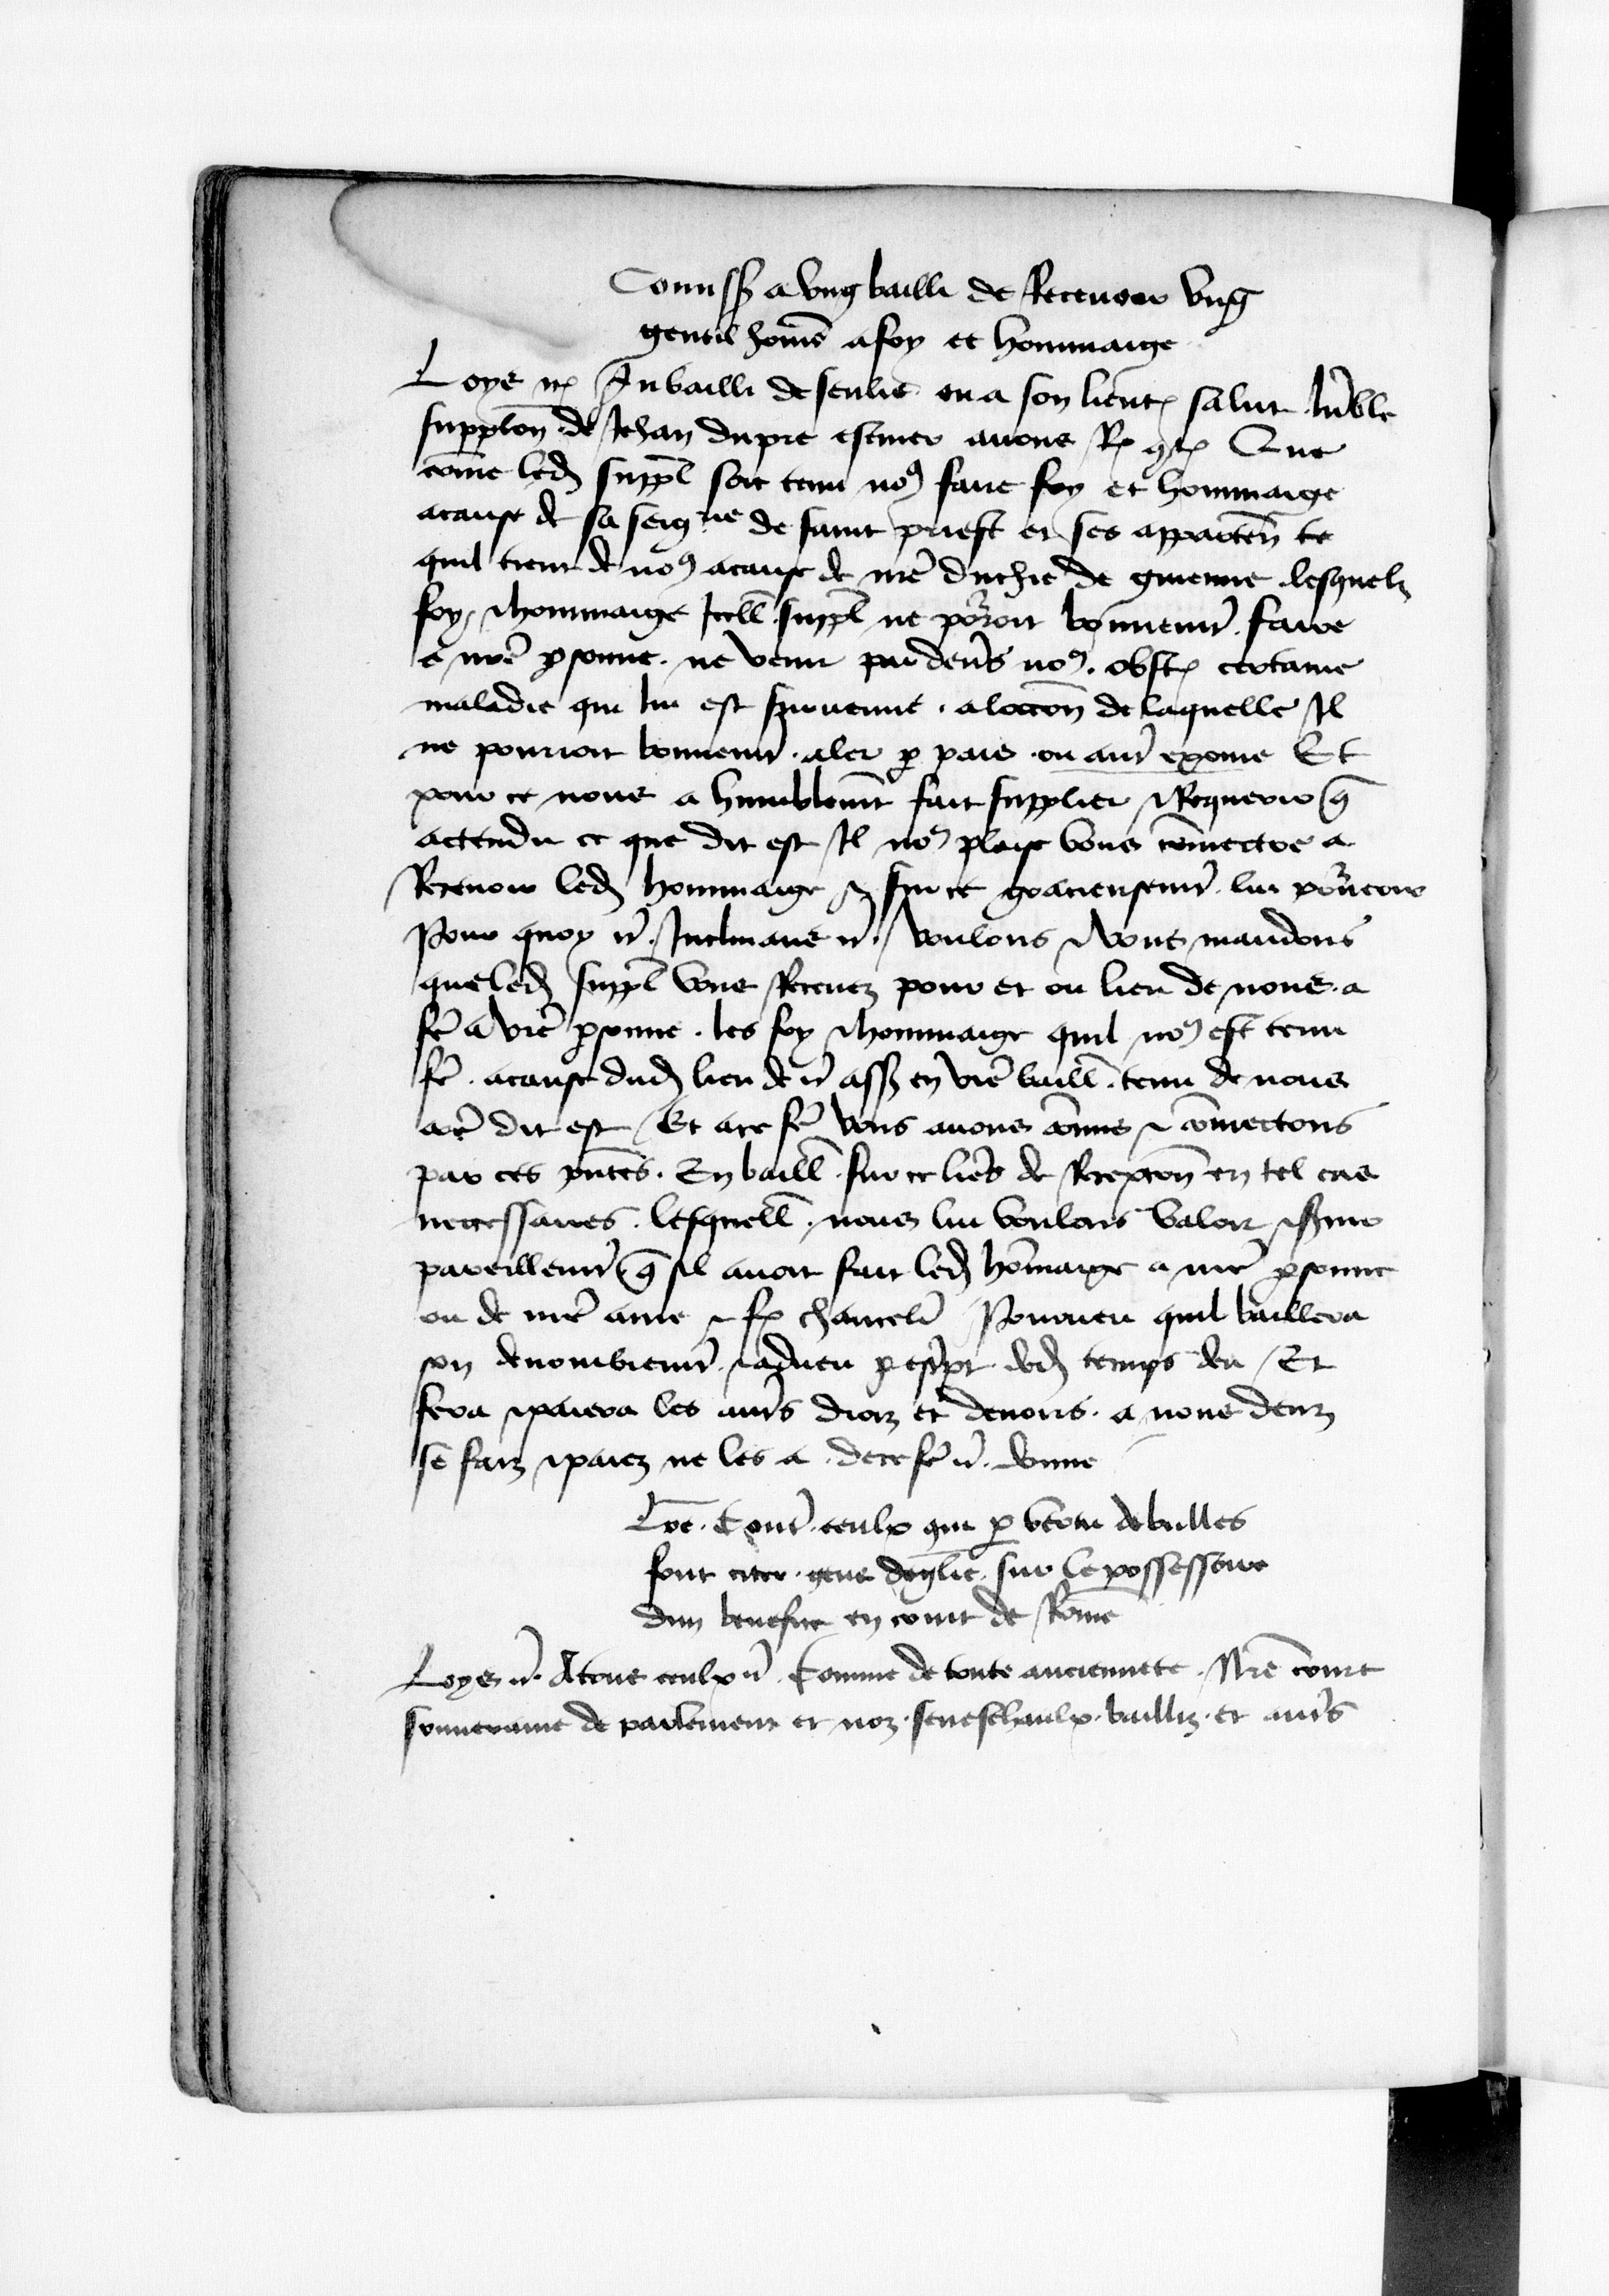 Commiss a ung bailli de Recevoir ung
gentil home a foy et hommaige
Loys etc Au bailli de senlis ou a son lieut salut lu'ble
supplon de Jehan dupre escuier avons R. Que
come led suppl soit tenu no9 faire foy et hommaige
a cause de sa seignrie de saint priest et ses apparten te
quil tient de no9 a cause de nre duchie de guienne lesquelz
foy & hommaige Icell suppl ne porroit bonnemt faire
a nre psonne ne venir par devs no9 obst certaine
maladie qui lui est survenue a loccon de laquelle Il
ne pourroit bonnemt aler p pais ou aut exoine Et
pour ce nous a humblemt fait supplier & Requerir q
actendu ce que dit est Il no9 plaise vous comectre a
Recevoir led hommaige & sur ce gracieusemt lui porveoir
Pour quoy etc Inclinans etc voulons & vous mandons
que led suppl vous Recevez pour et ou lieu de nous a
fe a vre psonne les foy & hommaige quil no9 est tenu
fe a cause dud lieu de etc assis en vre baill tenu de nous
coe dit est Et a ce fe vous avons comis & comectons
par ces pntes En baill sur ce lres de Recepcon en tel cas
necessaires lesquell nous lui voulons valoir & servir
pareillemt q sil avoit fait led homaige a nre psonne
ou de nre ame & f chancelr Pourveu quil baillera
son denombremt & adveu p escript ded temps deu Et
fera & paiera les autrs droiz et devoirs a nous deuz
se faiz & paiez ne les a de ce fe etc donne
Lre Contr ceulx qui p vertu de bulles
font citer gens deglise sur le possessoire
dun benefice en court de Romme
Loys etc A tous ceulx etc Comme de toute anciennete Nre court
souveraine de parlement et noz seneschaulx bailliz et autrs